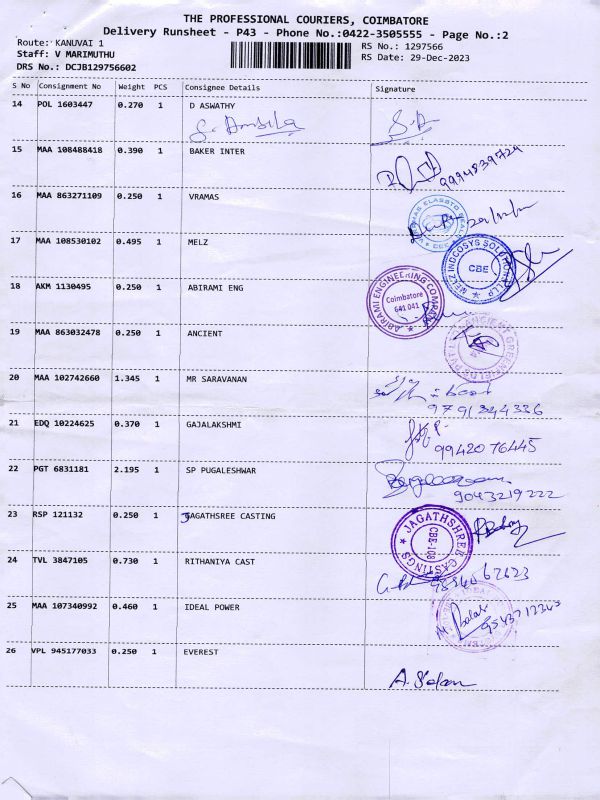 THE PROFESSIONAL COURIERS, COIMBATORE
Delivery Runsheet - P43 - Phone No.:0422-3505555 - Page No.:2
Route: KANUVAI 1
Staff: V MARIMUTHU
DRS No.: DCJB129756602
RS No.: 1297566
RS Date: 29-Dec-2023
S No Consignment No Weight PCS Consignee Details Signature
14 POL 1603447 0.270 1 D ASWATHY
S. Ambika
15 MAA 108488418 0.390 1 BAKER INTER
9994839729
16 MAA 863271109 0.250 1 VRAMAS
17 MAA 108530102 0.495 1 MELZ
MELZ INDCOSYS SOLUTION LLP
CBE
18 AKM 1130495 0.250 1 ABIRAMI ENG
ABIRAMI ENGINEERING COMPANY
Coimbatore
641 041
19 MAA 863032478 0.250 1 ANCIENT
ANCIENT GREENFIELDS PVT
20 MAA 102742660 1.345 1 MR SARAVANAN
9791344336
21 EDQ 10224625 0.370 1 GAJALAKSHMI
9942076445
22 PGT 6831181 2.195 1 SP PUGALESHWAR
9043219222
23 RSP 121132 0.250 1 JAGATHSREE CASTING
JAGATHSHREE CASTINGS
CBE-108
24 TVL 3847105 0.730 1 RITHANIYA CAST
25 MAA 107340992 0.460 1 IDEAL POWER
9543712343
26 VPL 945177033 0.250 1 EVEREST
A. Salam